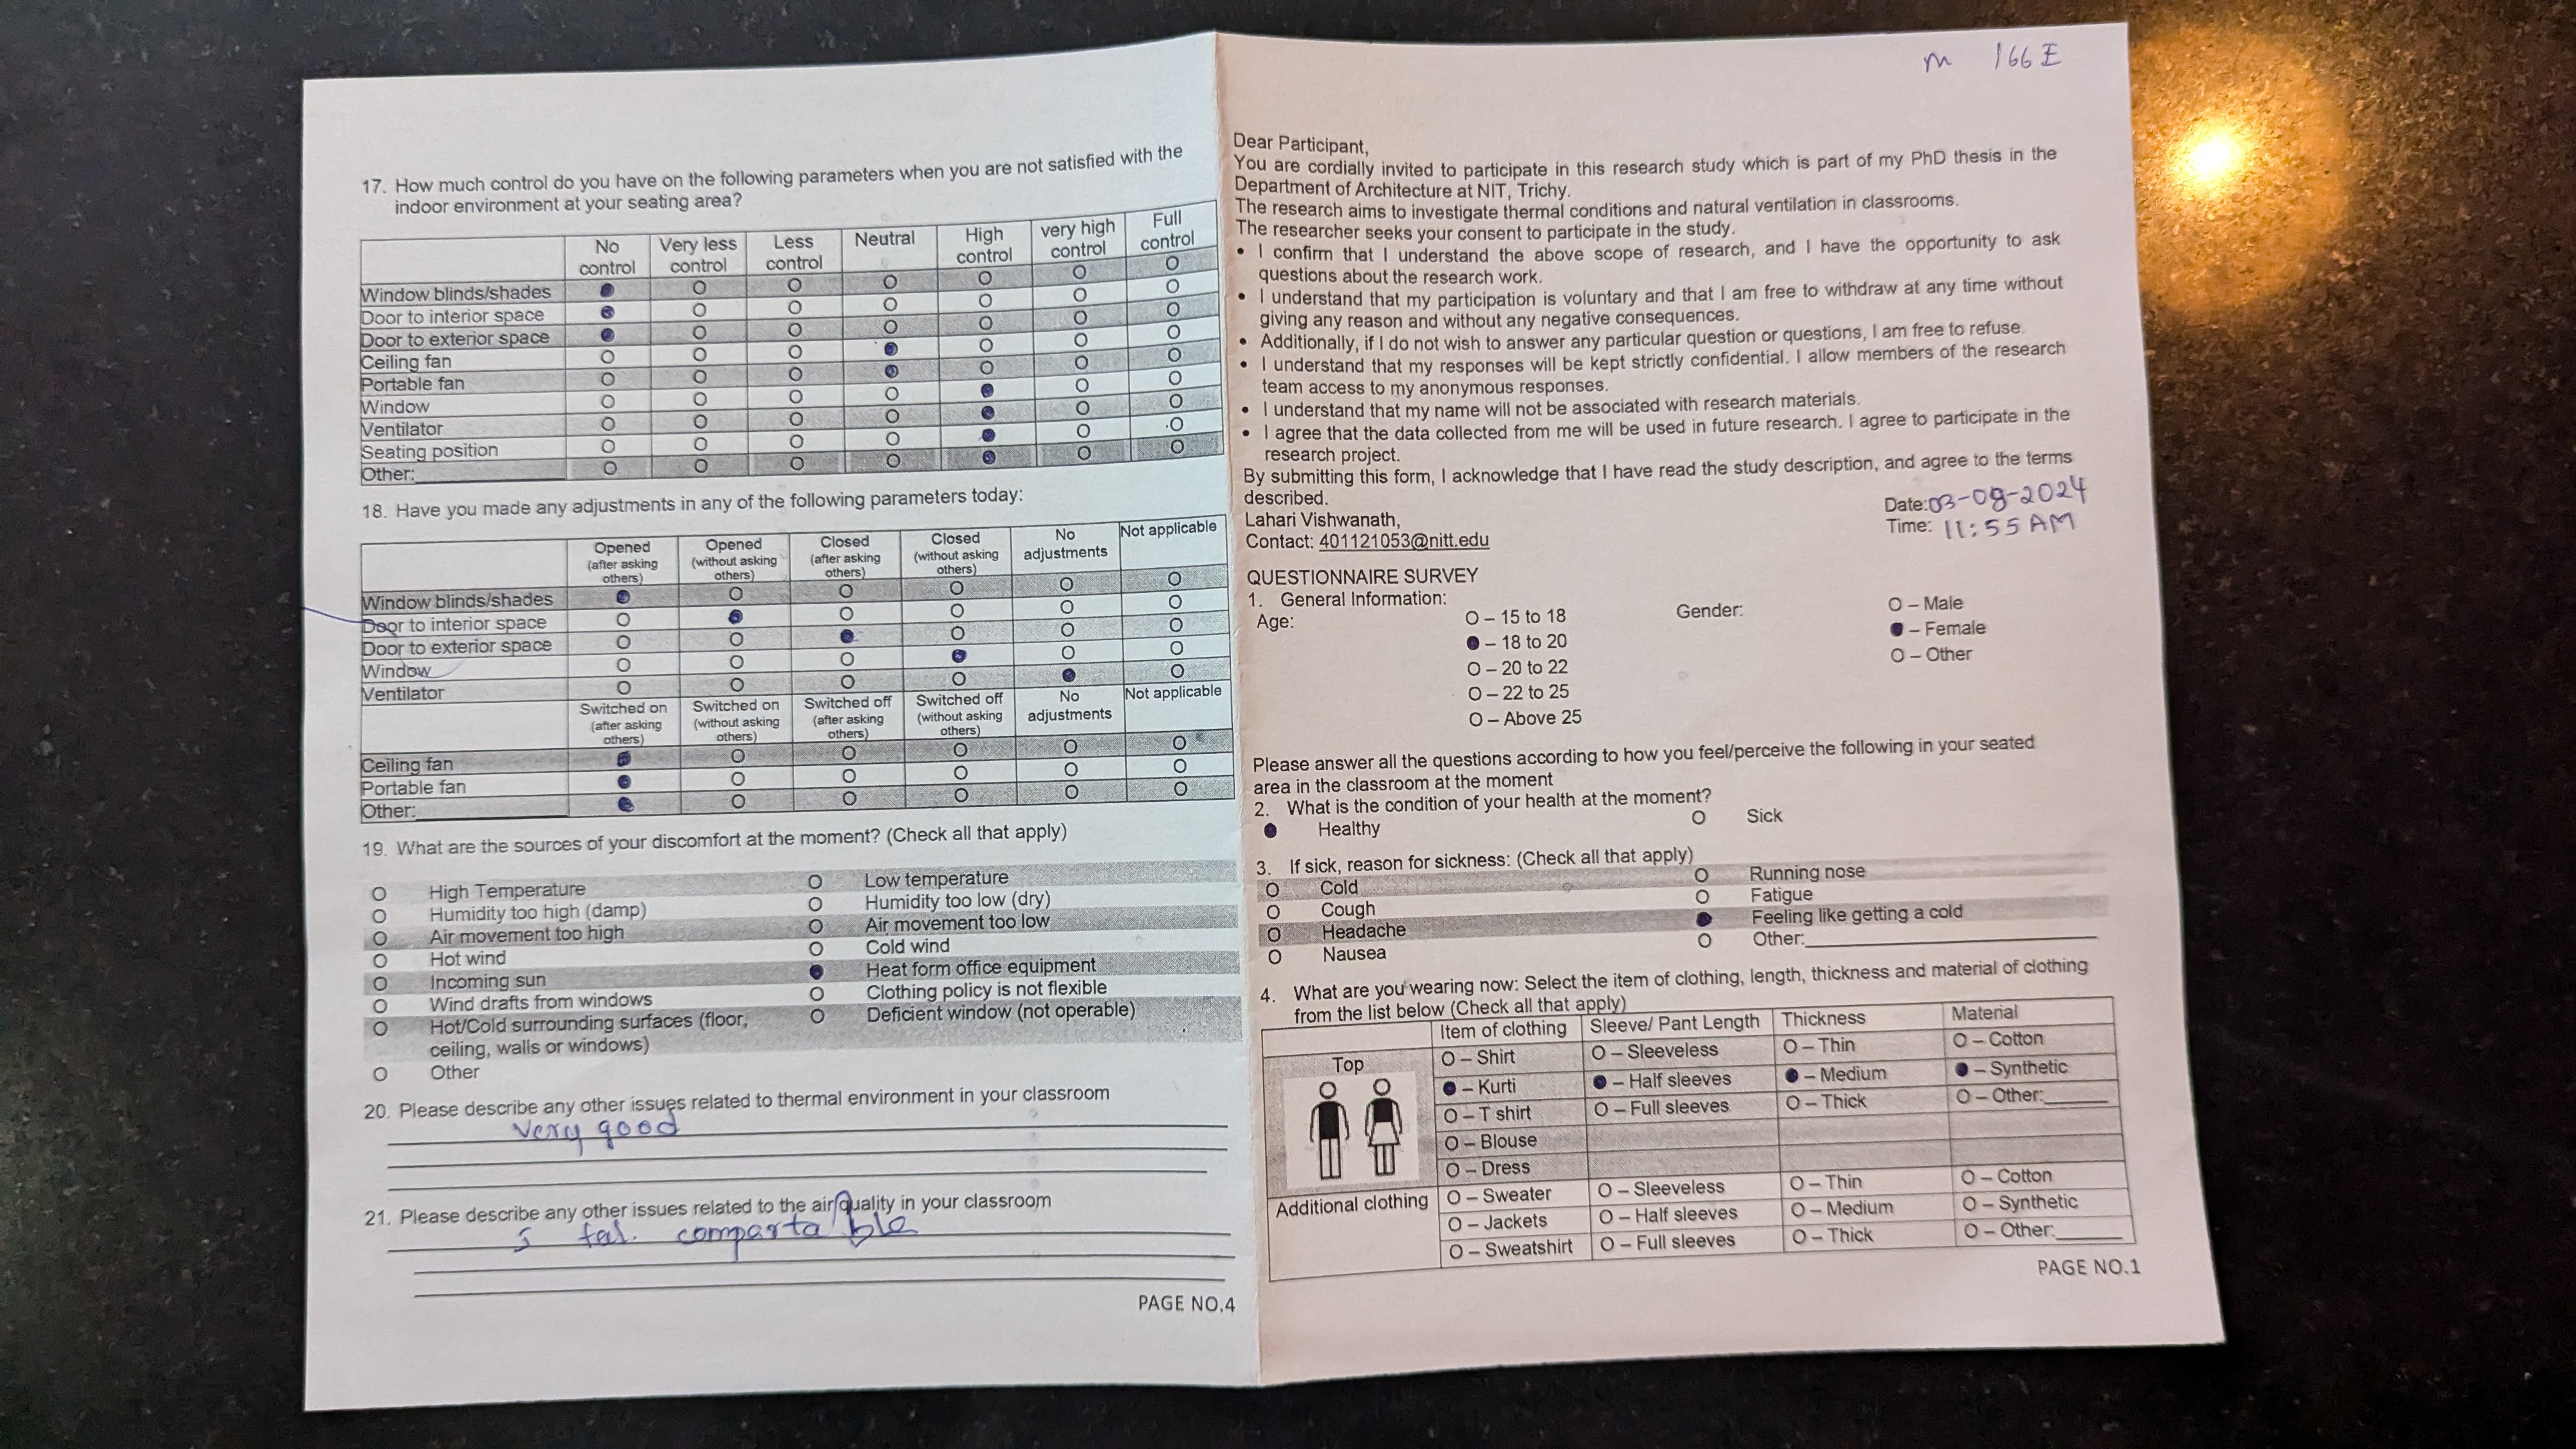 17. How much control do you have on the following parameters when you are not satisfied with the
indoor environment at your seating area?
No control Very less control Less control Neutral High control very high control Full control
Window blinds/shades ● O O O O O O
Door to interior space ● O O O O O O
Door to exterior space ● O O O O O O
Ceiling fan O O O ● O O O
Portable fan O O O ● O O O
Window O O O O ● O O
Ventilator O O O O ● O O
Seating position O O O O ● O O
Other:__________ O O O O ● O O
18. Have you made any adjustments in any of the following parameters today:
Opened (after asking others) Opened (without asking others) Closed (after asking others) Closed (without asking others) No adjustments Not applicable
Window blinds/shades ● O O O O O
Door to interior space O ● O O O O
Door to exterior space O O ● O O O
Window O O O ● O O
Ventilator O O O O ● O
Switched on (after asking others) Switched on (without asking others) Switched off (after asking others) Switched off (without asking others) No adjustments Not applicable
Ceiling fan ● O O O O O
Portable fan ● O O O O O
Other:__________ ● O O O O O
19. What are the sources of your discomfort at the moment? (Check all that apply)
O High Temperature O Low temperature
O Humidity too high (damp) O Humidity too low (dry)
O Air movement too high O Air movement too low
O Hot wind O Cold wind
O Incoming sun ● Heat form office equipment
O Wind drafts from windows O Clothing policy is not flexible
O Hot/Cold surrounding surfaces (floor, O Deficient window (not operable)
ceiling, walls or windows)
O Other
20. Please describe any other issues related to thermal environment in your classroom
very good
21. Please describe any other issues related to the air quality in your classroom
comparta ble
PAGE NO.4
m 166 E
Dear Participant,
You are cordially invited to participate in this research study which is part of my PhD thesis in the
Department of Architecture at NIT, Trichy.
The research aims to investigate thermal conditions and natural ventilation in classrooms.
The researcher seeks your consent to participate in the study.
• I confirm that I understand the above scope of research, and I have the opportunity to ask
questions about the research work.
• I understand that my participation is voluntary and that I am free to withdraw at any time without
giving any reason and without any negative consequences.
• Additionally, if I do not wish to answer any particular question or questions, I am free to refuse.
• I understand that my responses will be kept strictly confidential. I allow members of the research
team access to my anonymous responses.
• I understand that my name will not be associated with research materials.
• I agree that the data collected from me will be used in future research. I agree to participate in the
research project.
By submitting this form, I acknowledge that I have read the study description, and agree to the terms
described.
Date:03-08-2024
Lahari Vishwanath,
Time: 11:55 AM
Contact: 401121053@nitt.edu
QUESTIONNAIRE SURVEY
1. General Information:
Age: O – 15 to 18 Gender: O – Male
● – 18 to 20 ● – Female
O – 20 to 22 O – Other
O – 22 to 25
O – Above 25
Please answer all the questions according to how you feel/perceive the following in your seated
area in the classroom at the moment
2. What is the condition of your health at the moment?
● Healthy O Sick
3. If sick, reason for sickness: (Check all that apply)
O Cold O Running nose
O Cough O Fatigue
O Headache ● Feeling like getting a cold
O Nausea O Other:__________
4. What are you wearing now: Select the item of clothing, length, thickness and material of clothing
from the list below (Check all that apply)
Item of clothing Sleeve/ Pant Length Thickness Material
Top O – Shirt O – Sleeveless O – Thin O – Cotton
● – Kurti ● – Half sleeves ● – Medium ● – Synthetic
O – T shirt O – Full sleeves O – Thick O – Other:______
O – Blouse
O – Dress
Additional clothing O – Sweater O – Sleeveless O – Thin O – Cotton
O – Jackets O – Half sleeves O – Medium O – Synthetic
O – Sweatshirt O – Full sleeves O – Thick O – Other:______
PAGE NO.1